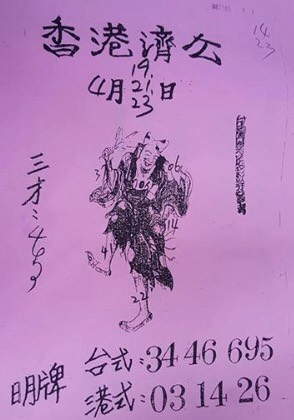 14
23
香港濟公
19.
4月21日
23
三才:469
06
14
22
明牌
台式:34 46 695
港式:03 14 26